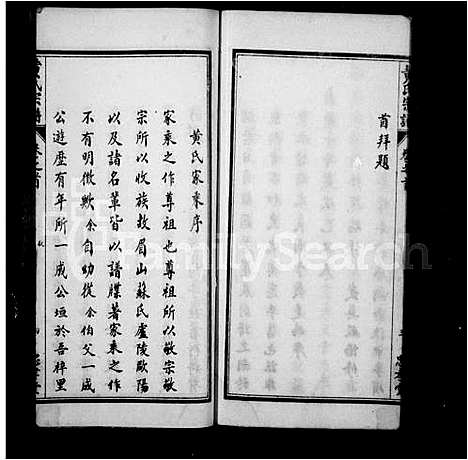 首拜題
黄氏家乘序
家乘之作尊祖也尊祖所以敬宗敬
宗所以收族故眉山蘇氏盧陵歐陽
以及諸名輩皆以譜牒著家乘之作
不有明徵歟余自幼從余伯父一成
公遊歷有年所一成公垣於吾梓里
黄氏宗譜
FamilySearch